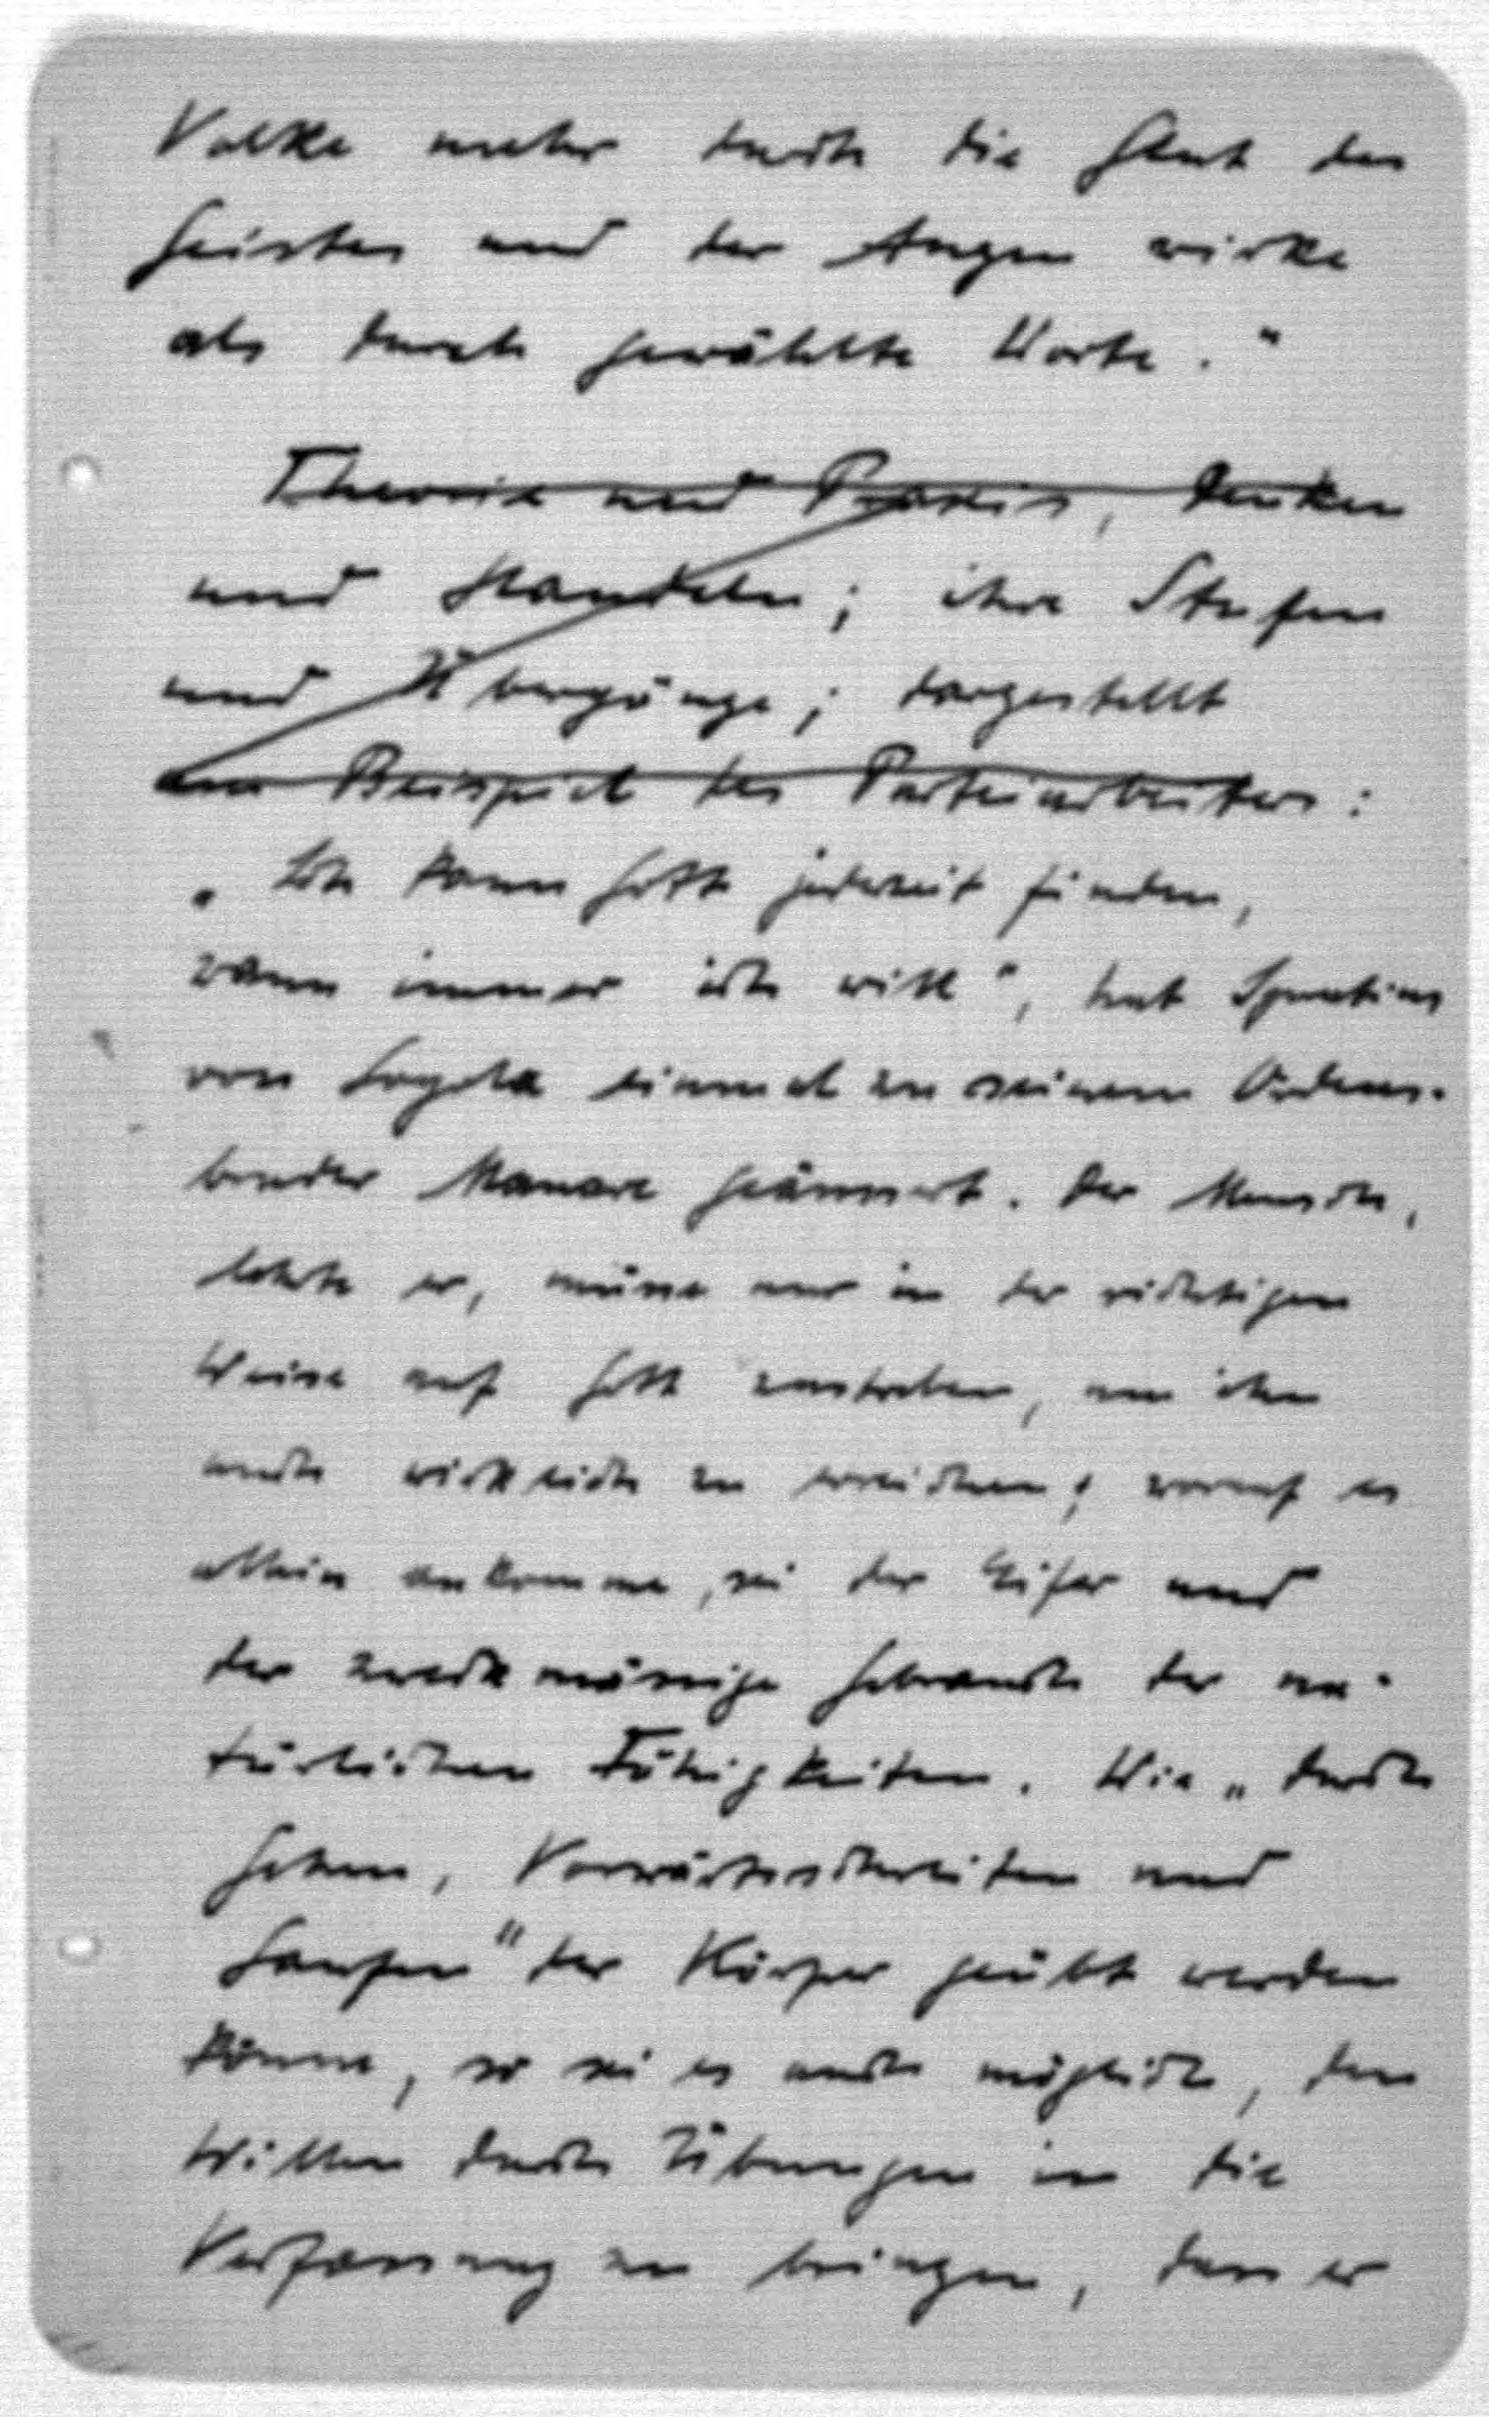 Volke mehr durch die Glut des
Geistes und der Augen wirke
als durch gewählte Worte."
Theorie und Praxis, Denken
und Handeln; ihre Stufen
und Übergänge; dargestellt
am Beispiel des Parteiarbeiters:
„Ich kann Gott jederzeit finden,
wann immer ich will", hat Ignatius
von Loyola einmal zu seinem Ordens-
bruder Manare geäussert. Der Mensch,
lehrte er, müsse nur in der richtigen
Weise auf Gott zustreben, um ihn
auch wirklich zu erreichen; worauf es
allein ankomme, sei der Eifer und
der zweckmässige Gebrauch der na-
türlichen Fähigkeiten. Wie „durch
Gehen, Vorwärtsschreiten und
Laufen" der Körper geübt werden
könne, so sei es auch möglich, den
Willen durch Übungen in die
Verfassung zu bringen, dass er